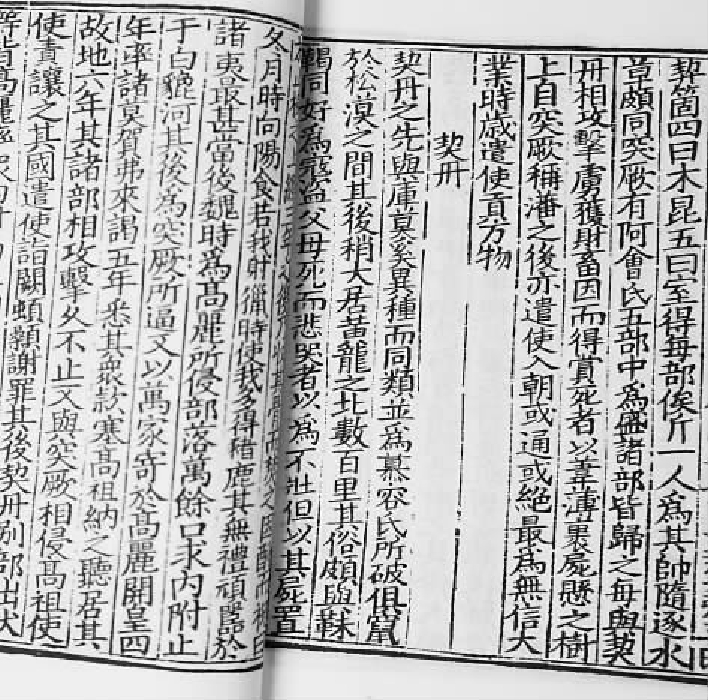 契箇四曰木昆五曰室得每部俟斤一人爲其帥隨逐水
草頗同突厥有阿會氏五部中爲盛諸部皆歸之每與契
丹相攻擊虜獲財畜因而得賞死者以葦薄裹屍懸之樹
上自突厥稱藩之後亦遣使入朝或通或絕最爲無信大
業時歲遣使貢方物
契丹
契丹之先與庫莫奚異種而同類並爲慕容氏所破俱竄
於松漠之間其後稍大居黃龍之北數百里其俗頗與靺
鞨同好爲寇盜父母死而悲哭者以爲不壯但以其屍置
冬月時向陽食若我射獵時使我多得豬鹿其無禮頑嚚於
諸夷最甚當後魏時爲高麗所侵部落萬餘口求內附止
于白貔河其後爲突厥所逼又以萬家寄於高麗開皇四
年率諸莫賀弗來謁五年悉其衆款塞高祖納之聽居其
故地六年其諸部相攻擊久不止又與突厥相侵高祖使
使責讓之其國遣使詣闕頓顙謝罪其後契丹別部出伏
等皆高麗